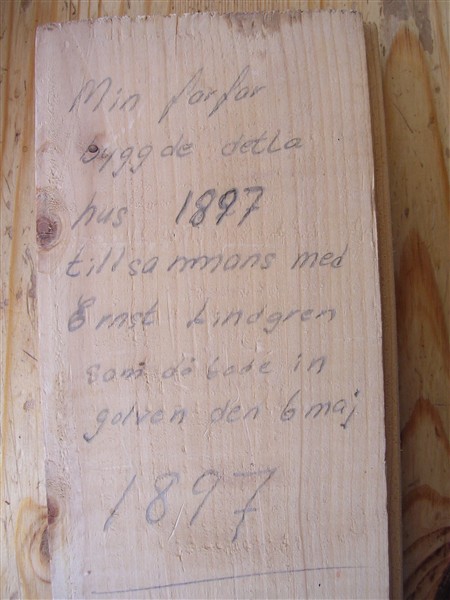 Min farfar
byggde detta
hus 1897
tillsammans med
Ernst Lindgren
som då lade in
golven den 6 maj
1897